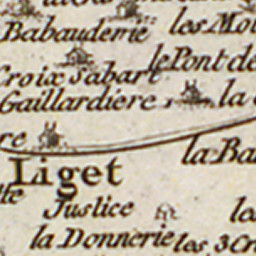 Babauderie
les Mou
le Pont de
Croix Sabart
Gaillardiere
la
re
la Ba
Liget
Justice
la Donnerie
les 3 Cr